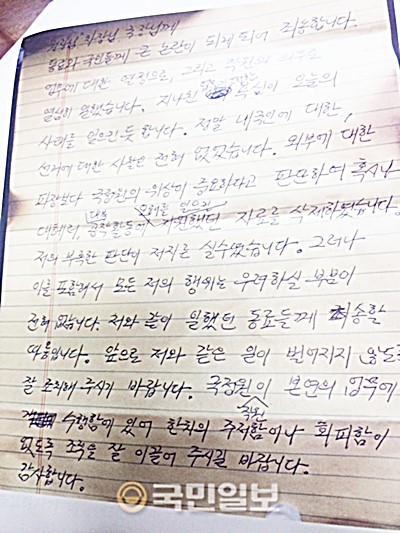 원장님, 차장님, 국장님께
동료와 국민들께 큰 논란이 되게 되어 죄송합니다.
업무에 대한 열정으로, 그리고 직원의 의무로
열심히 일했습니다. 지나친 욕심이 오늘의
사태를 일으킨 듯 합니다. 정말 내국인에 대한,
선거에 대한 사찰은 전혀 없었습니다. 외부에 대한
파장보다 국정원의 위상이 중요하다고 판단하여 혹시나
대테러, 대북 공작활동에 오해를 일으킨 지원했던 자료를 삭제하였습니다.
저의 부족한 판단이 저지른 실수였습니다. 그러나
이를 포함해서 모든 저의 행위는 우려하실 부분이
전혀 없습니다. 저와 같이 일했던 동료들께 죄송할
따름입니다. 앞으로 저와 같은 일이 벌어지지 않도록
잘 조치해 주시기 바랍니다. 국정원이 본연의 업무에
수행함에 있어 직원 한치의 주저함이나 회피함이
없도록 조직을 잘 이끌어 주시길 바랍니다.
감사합니다.
국민일보